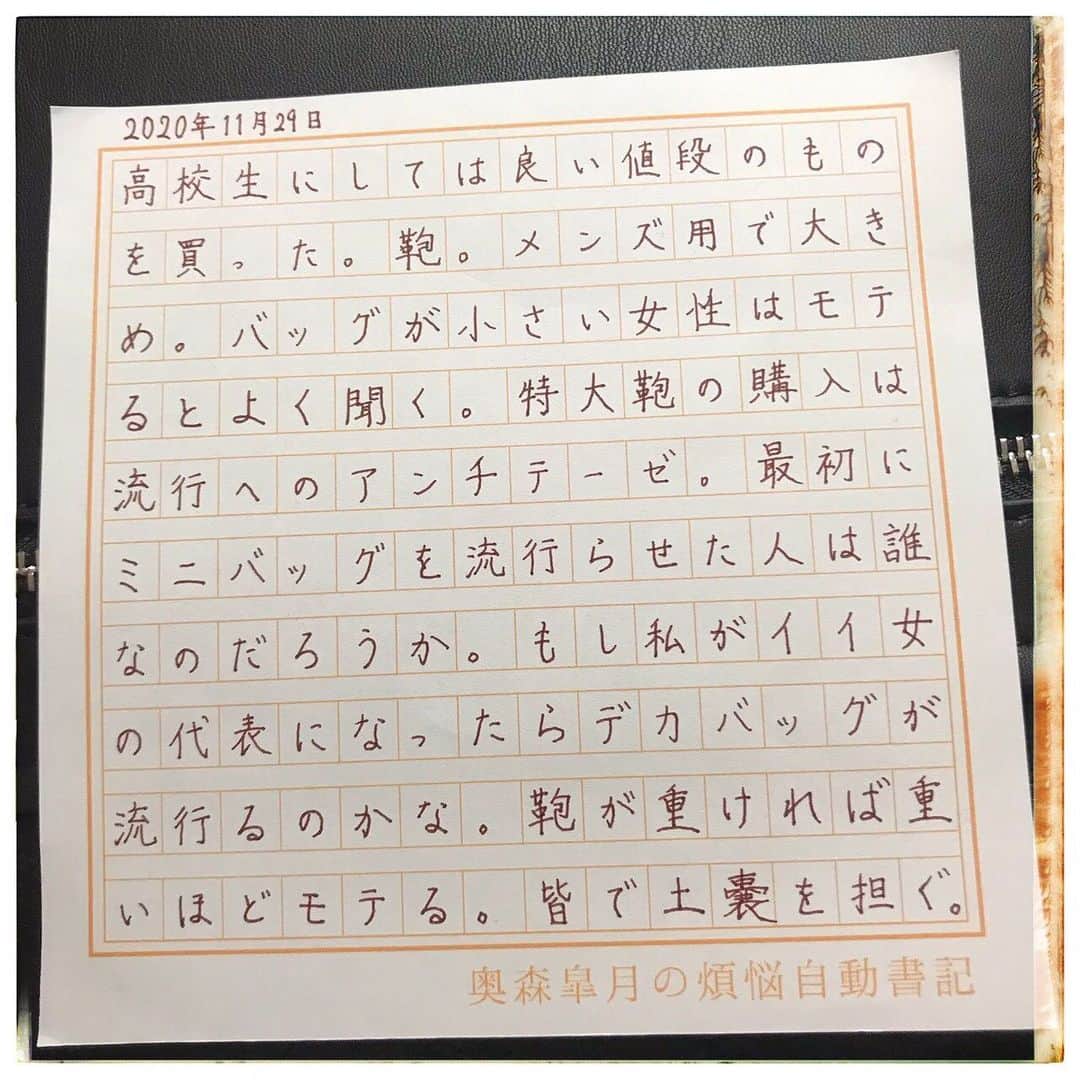 2020年11月29日
高校生にしては良い値段のもの
を買った。鞄。メンズ用で大き
め。バッグが小さい女性はモテ
るとよく聞く。特大鞄の購入は
流行へのアンチテーゼ。最初に
ミニバッグを流行らせた人は誰
なのだろうか。もし私がイイ女
の代表になったらデカバッグが
流行るのかな。鞄が重ければ重
いほどモテる。皆で土嚢を担ぐ。
奥森皐月の煩悩自動書記